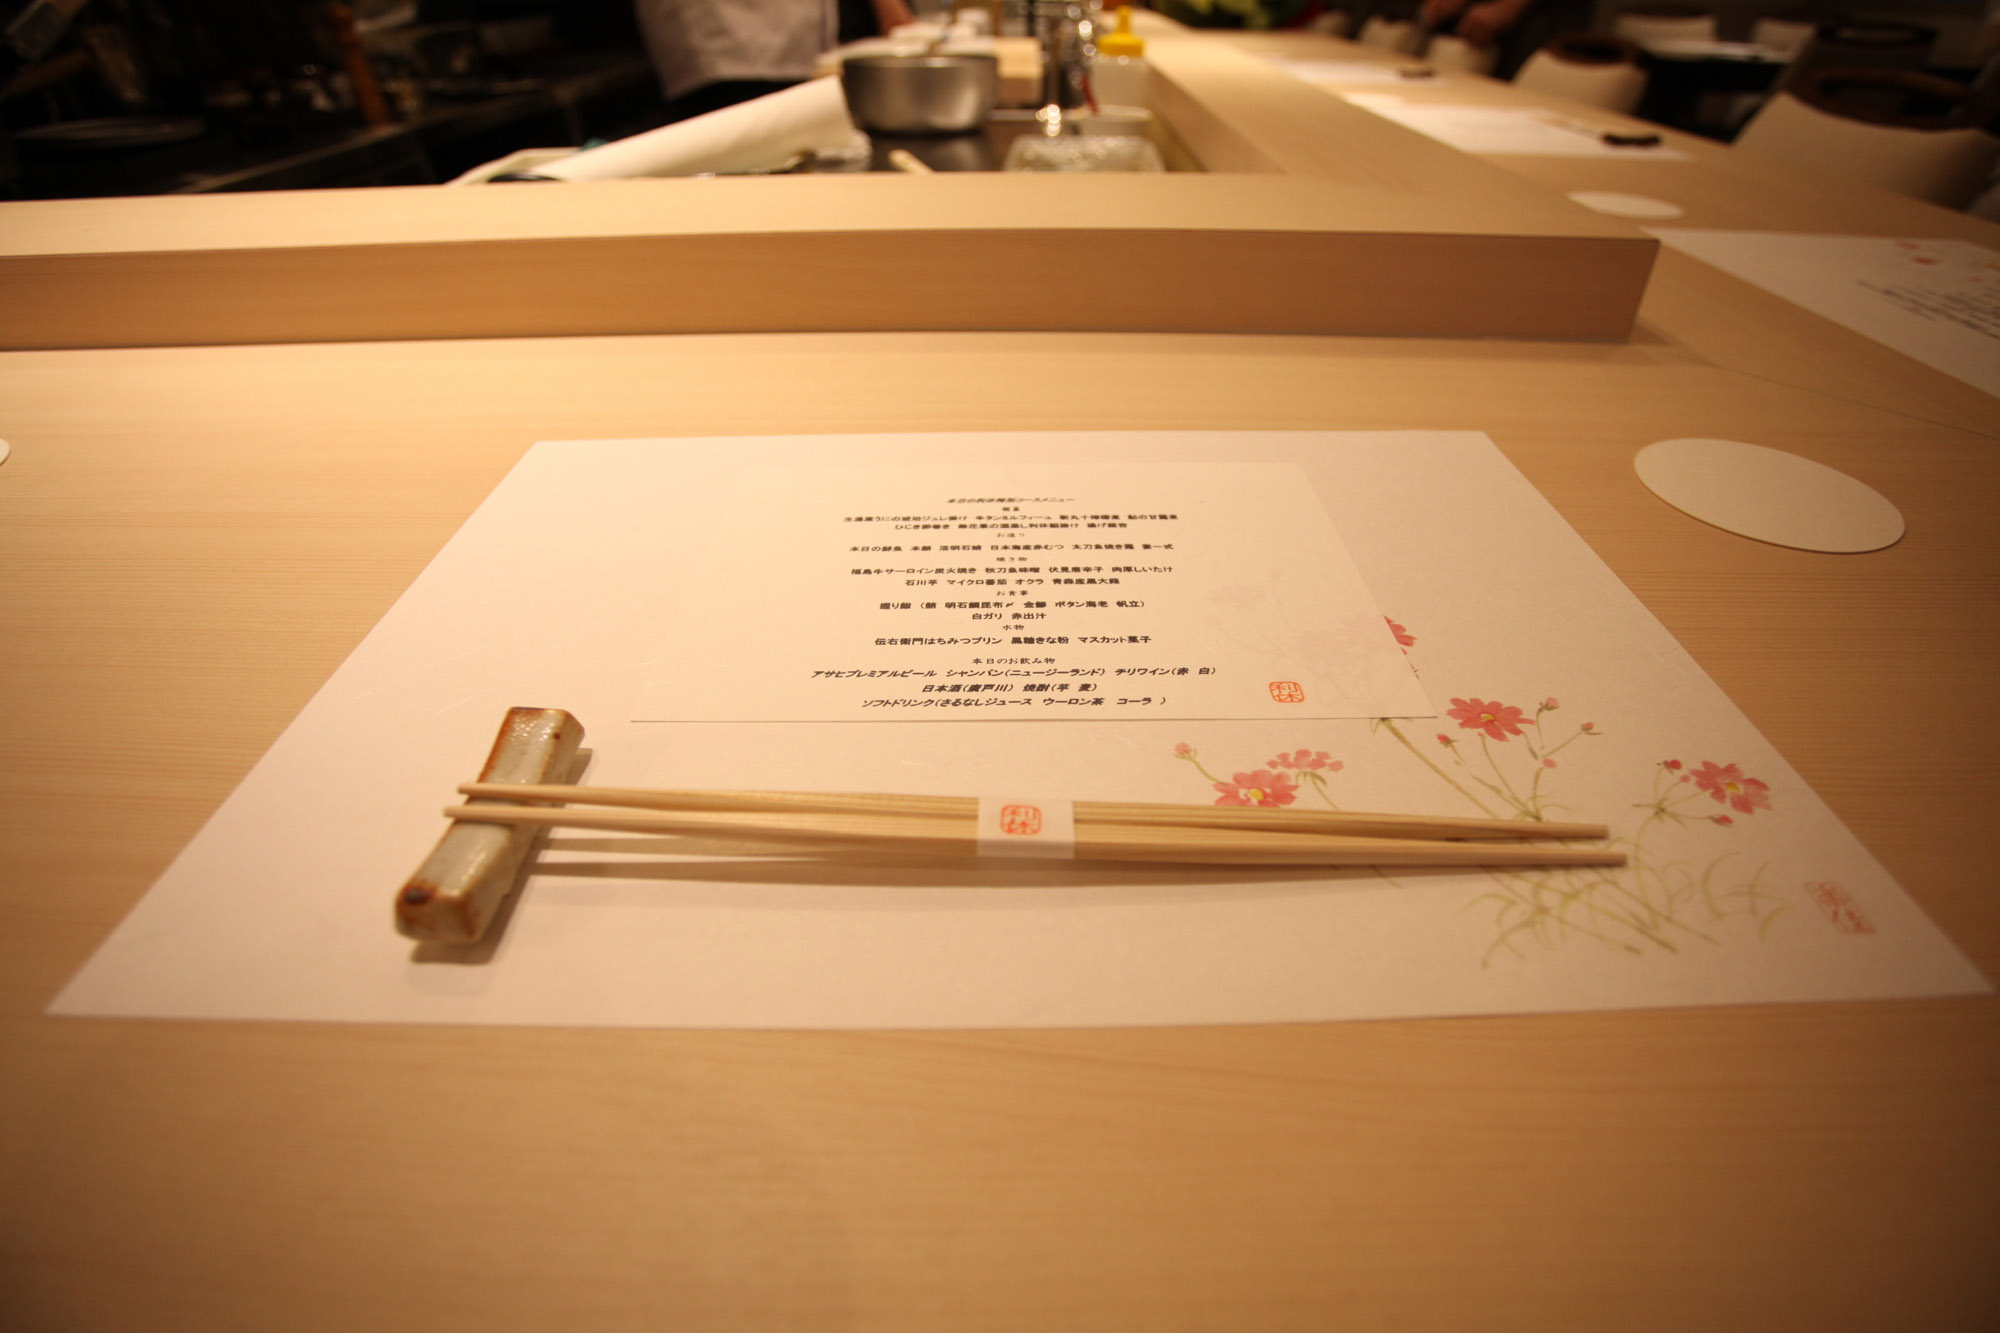 本日の利休特別コースメニュー
前菜
生湯葉うにの琥珀ジュレ掛け 牛タンミルフィーユ 新丸十檸檬煮 鮎の甘露煮
ひじき卵巻き 無花果の酒蒸し利休餡掛け 揚げ銀杏
お造り
本日の鮮魚 本鮪 活明石蛸 日本海産赤むつ 太刀魚焼き霜 妻一式
焼き物
福島牛サーロイン炭火焼き 秋刀魚味噌 伏見唐辛子 肉厚しいたけ
石川芋 マイクロ蕃茄 オクラ 青森産黒大蒜
お食事
握り鮨 (鮪 明石鯛昆布〆 金鯵 ボタン海老 帆立)
白ガリ 赤出汁
水物
伝右衛門はちみつプリン 黒糖きな粉 マスカット菓子
本日のお飲み物
アサヒプレミアルビール シャンパン(ニュージーランド) チリワイン(赤 白)
日本酒(廣戸川) 焼酎(芋 麦)
ソフトドリンク(さるなしジュース ウーロン茶 コーラ )
利休
利休